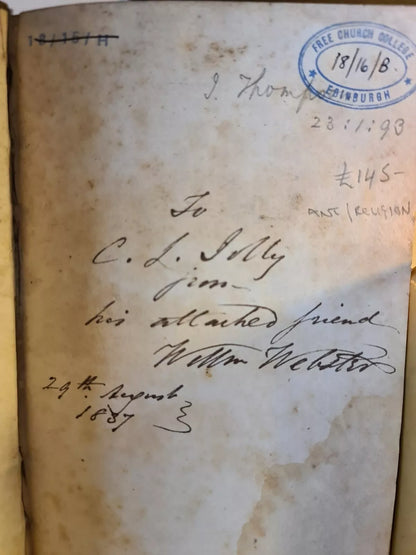 18/16/H
FREE CHURCH COLLEGE
18/16/B.
EDINBURGH
J. Thompson
23:1:93
£145-
ANT/RELIGION
To
C. L. Jolly
from
his attached friend
Webster
29th August
1837